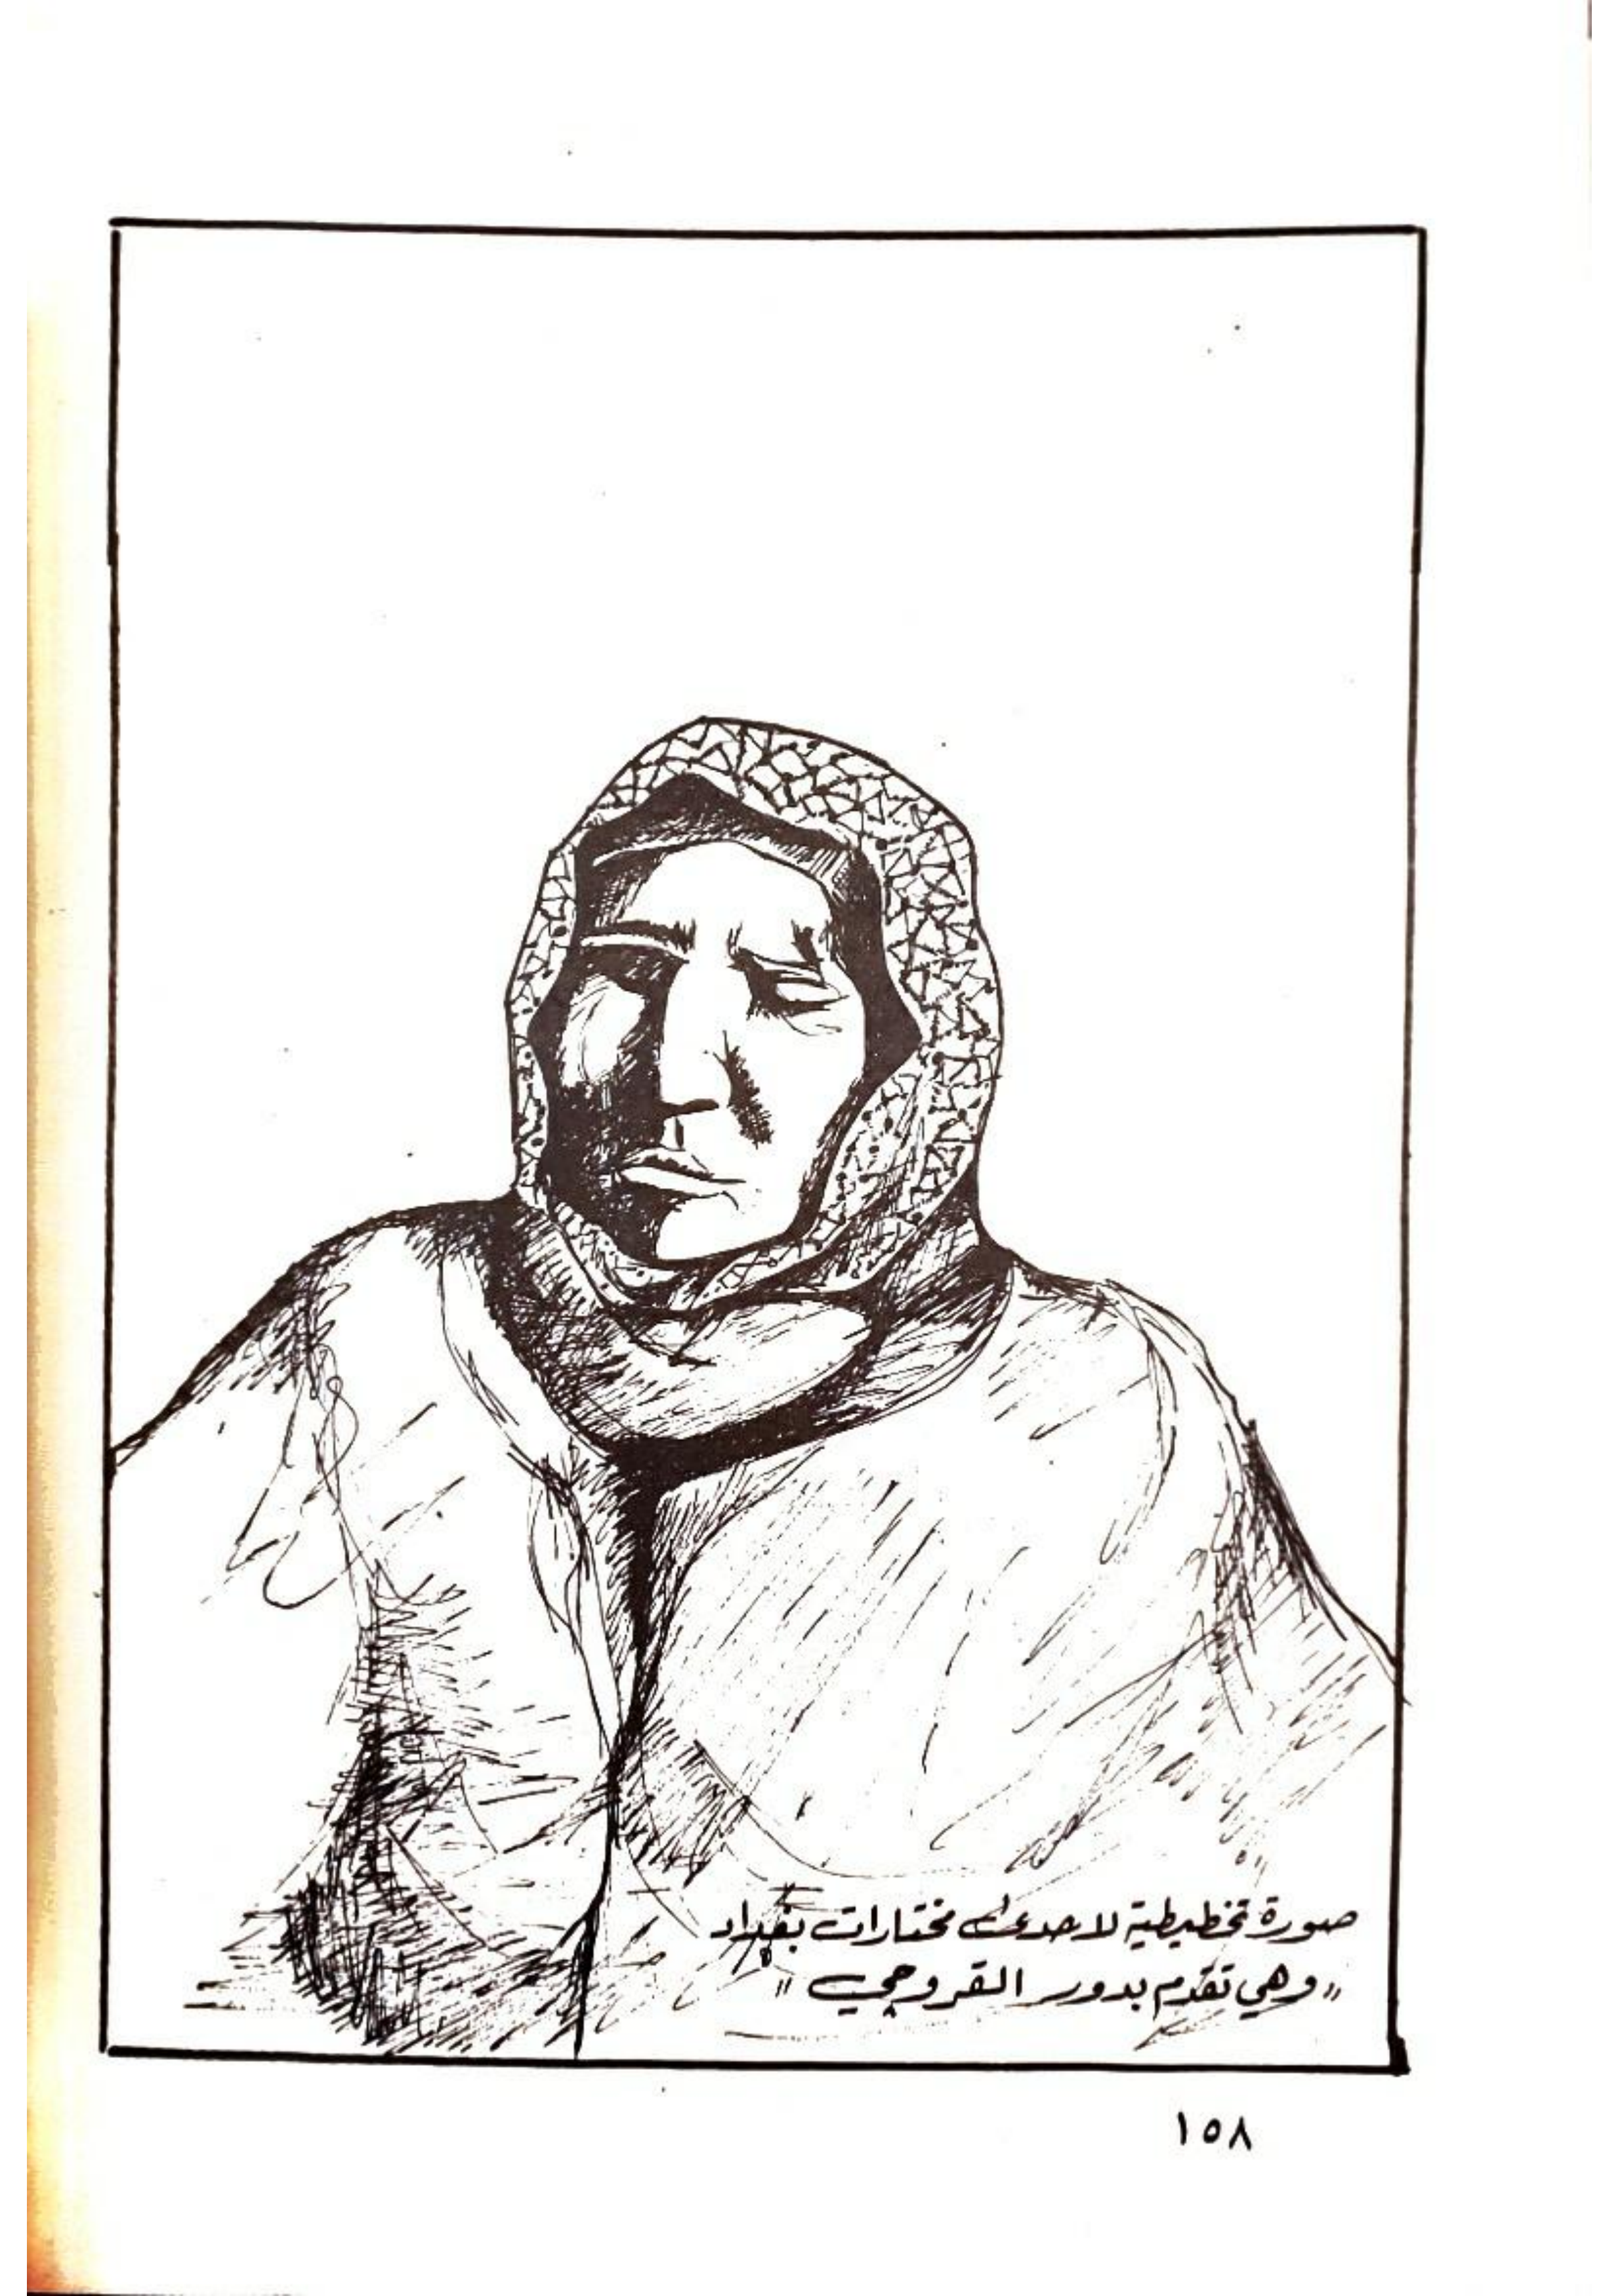 صورة تخطيطية لاحدى مختارات بغداد
"وهي تقدم بدور القروجي"
١٥٨